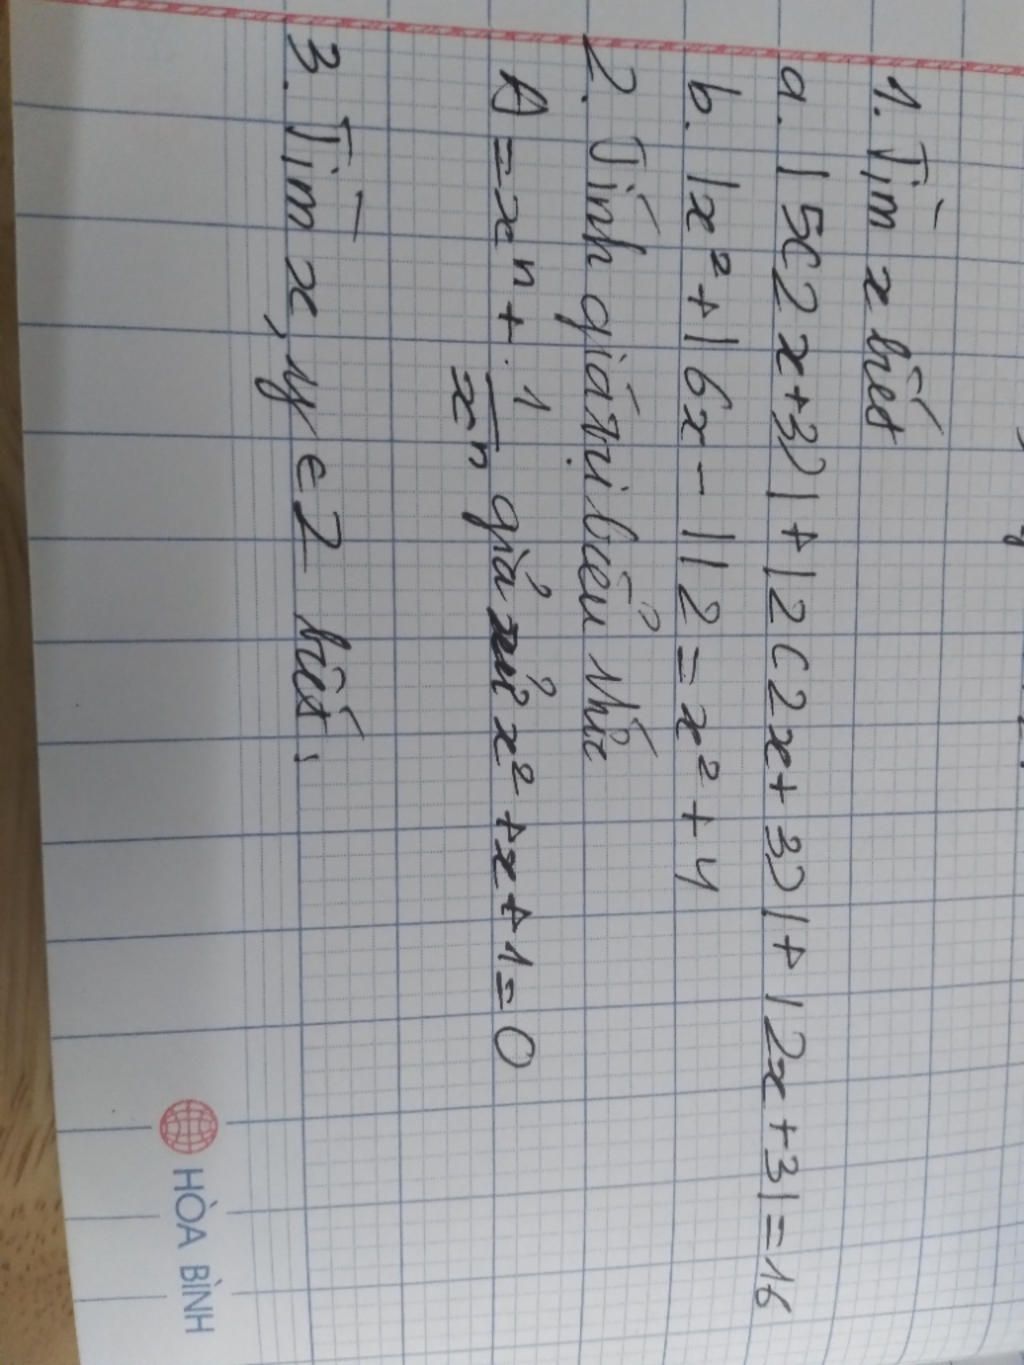 1. Tìm x biết
a. |5(2x+3)|+|2(2x+3)|+|2x+3|=16
b. |x²+|6x-||2=x²+4
2. Tính giá trị biểu thức
A=x^n+1/x^n giả sử x²+x+1=0
3. Tìm x,y∈Z biết:
HÒA BÌNH